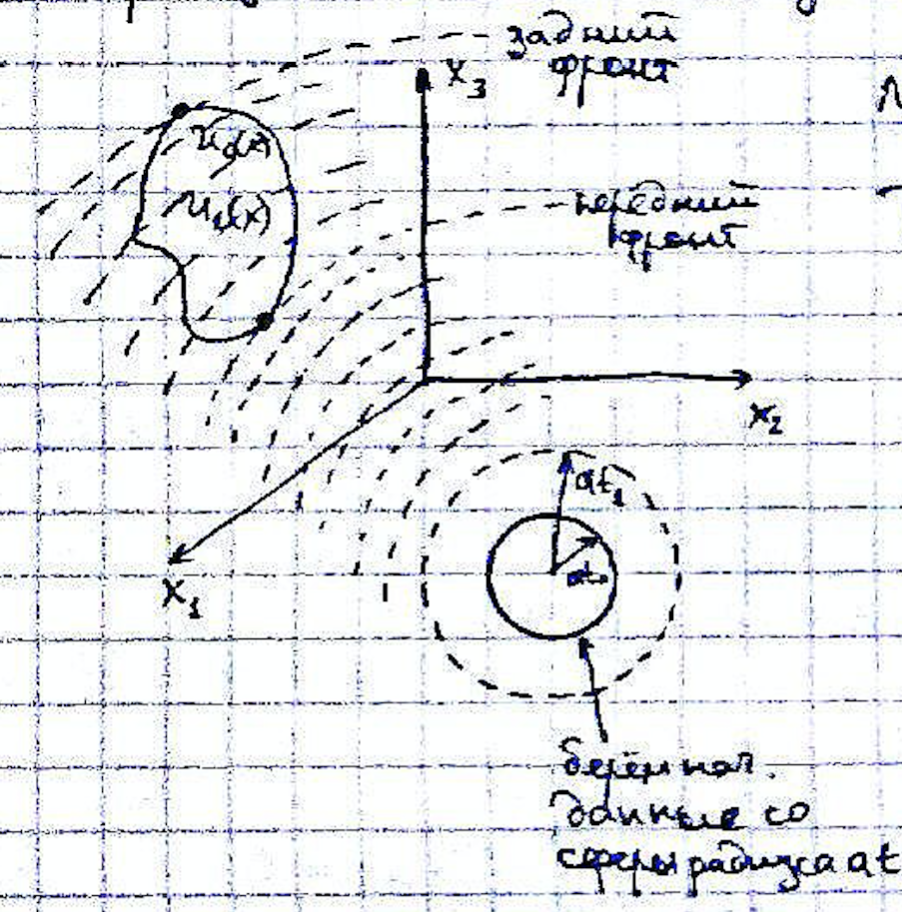 задний
фронт
x₃
u₀(x)
u₁(x)
передний
фронт
x₂
at₁
at₀
x₁
берём нач.
данные со
сферы радиуса at